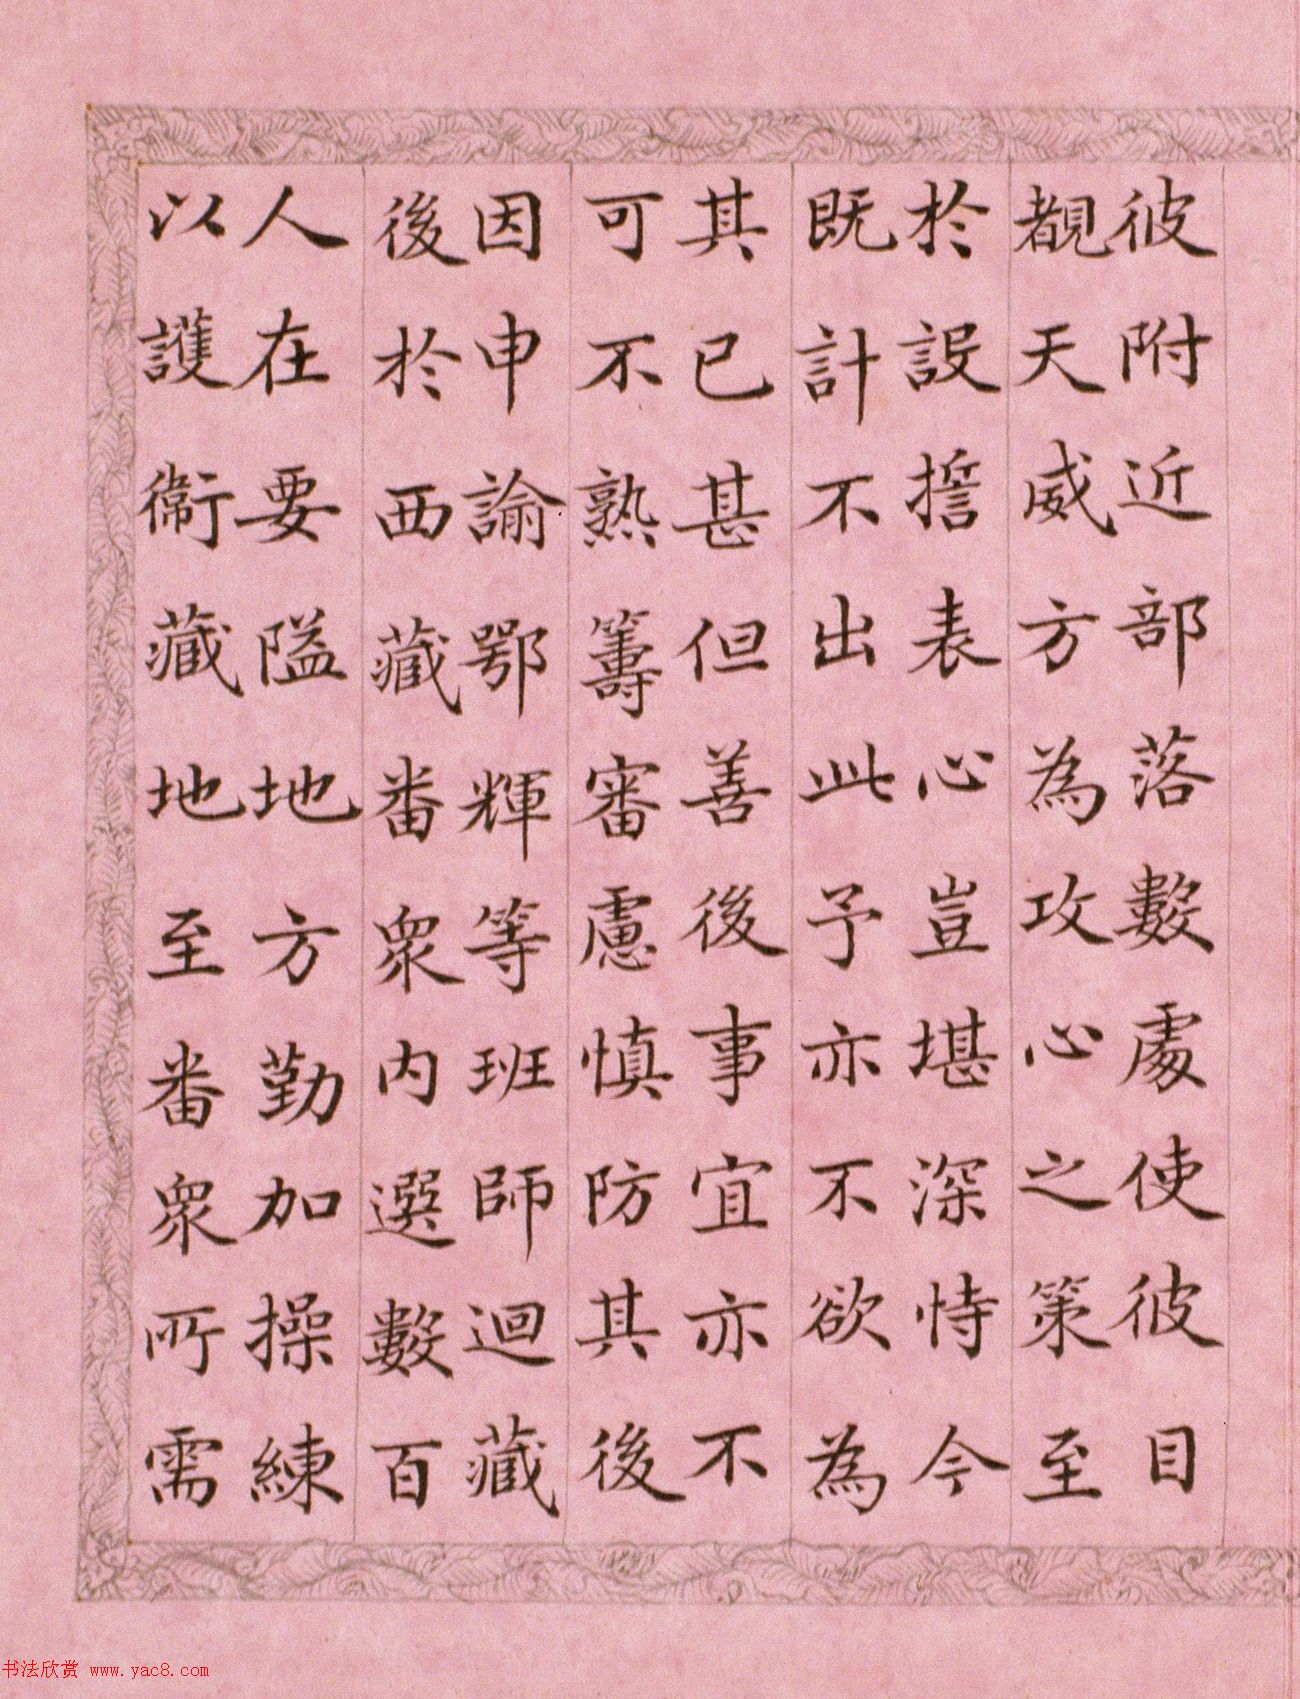 彼附近部落數處使彼目
覩天威方為攻心之策至
於設誓表心豈堪深恃今
既計不出此予亦不欲為
其已甚但善後事宜亦不
可不熟籌審慮慎防其後
因申諭鄂輝等班師迴藏
後於西藏番眾內選數百
人在要隘地方勤加操練
以護衞藏地至番眾所需
书法欣赏 www.yac8.com